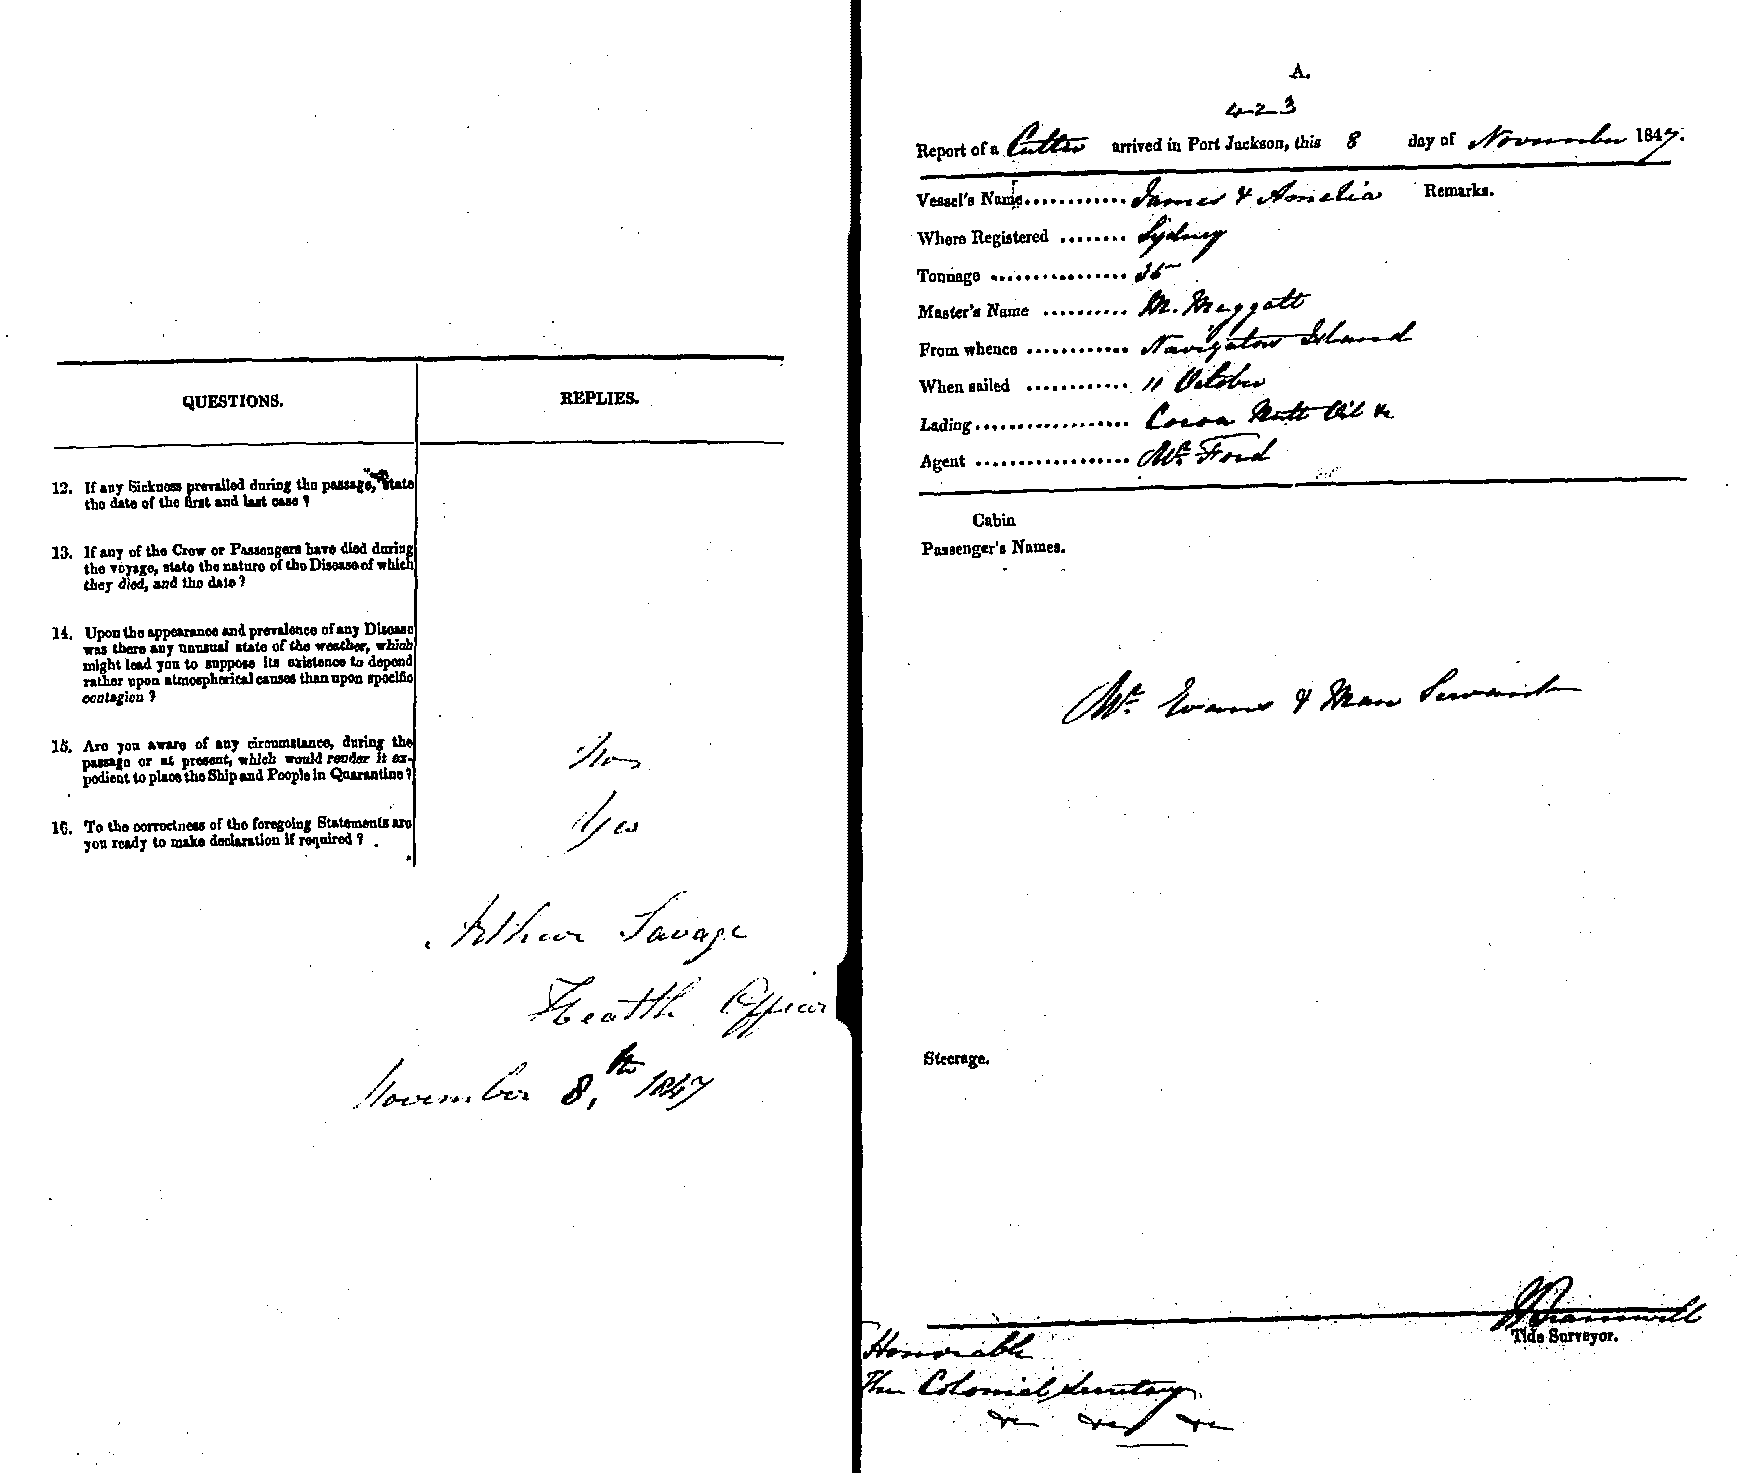 QUESTIONS.
REPLIES.
12. If any Sickness prevailed during the passage, state
the date of the first and last case ?
13. If any of the Crew or Passengers have died during
the voyage, state the nature of the Disease of which
they died, and the date ?
14. Upon the appearance and prevalence of any Disease
was there any unusual state of the weather, which
might lead you to suppose its existence to depend
rather upon atmospherical causes than upon specific
contagion ?
15. Are you aware of any circumstance, during the
passage or at present, which would render it ex-
pedient to place the Ship and People in Quarantine ?
16. To the correctness of the foregoing Statements are
you ready to make declaration if required ?
Yes
Arthur Savage
Health Officer
November 8,th 1847
A.
423
Report of a Cutter arrived in Port Jackson, this 8 day of November 1847.
Vessel's Name............ James & Amelia Remarks.
Where Registered ........ Sydney
Tonnage ................ 35
Master's Name .......... M. Meggatt
From whence ............ Navigators Island
When sailed ............ 11 October
Lading.................. Cocoa Nutt Oil &c
Agent .................. Mr. Ford
Cabin
Passenger's Names.
Mr. Evans & Man Servant
Steerage.
Bramwell
Tide Surveyor.
Honorable
The Colonial Secretary
&c &c &c